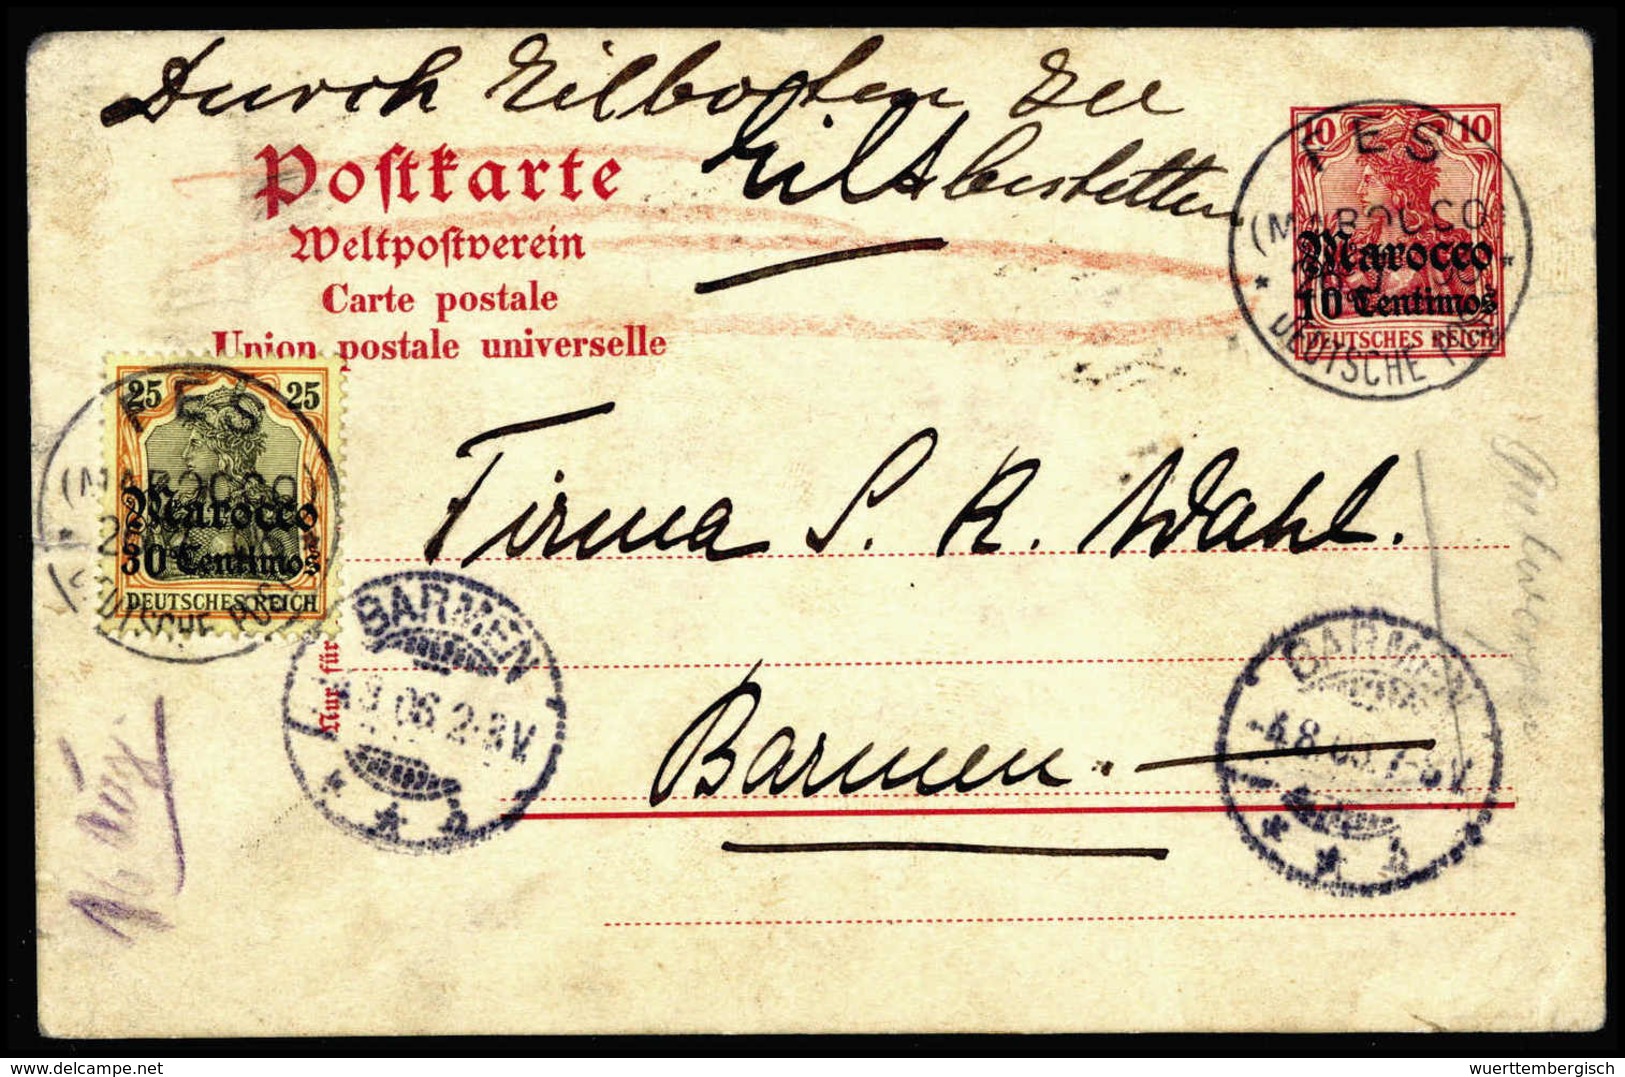 Durch Eilboten
Postkarte
Weltpostverein
Carte postale
Union postale universelle
10 10
FES
(MAROCCO)
Marocco
10 Centimos
DEUTSCHES REICH
DEUTSCHE POST
25 25
FES
(MAROCCO)
Marocco
30 Centimos
DEUTSCHES REICH
DEUTSCHE POST
Firma S. R. Wahl.
Nur für
BARMEN
06.2-3V
BARMEN
4.8.06.7-8V
Barmen.
delcampe.net
wuerttembergisch